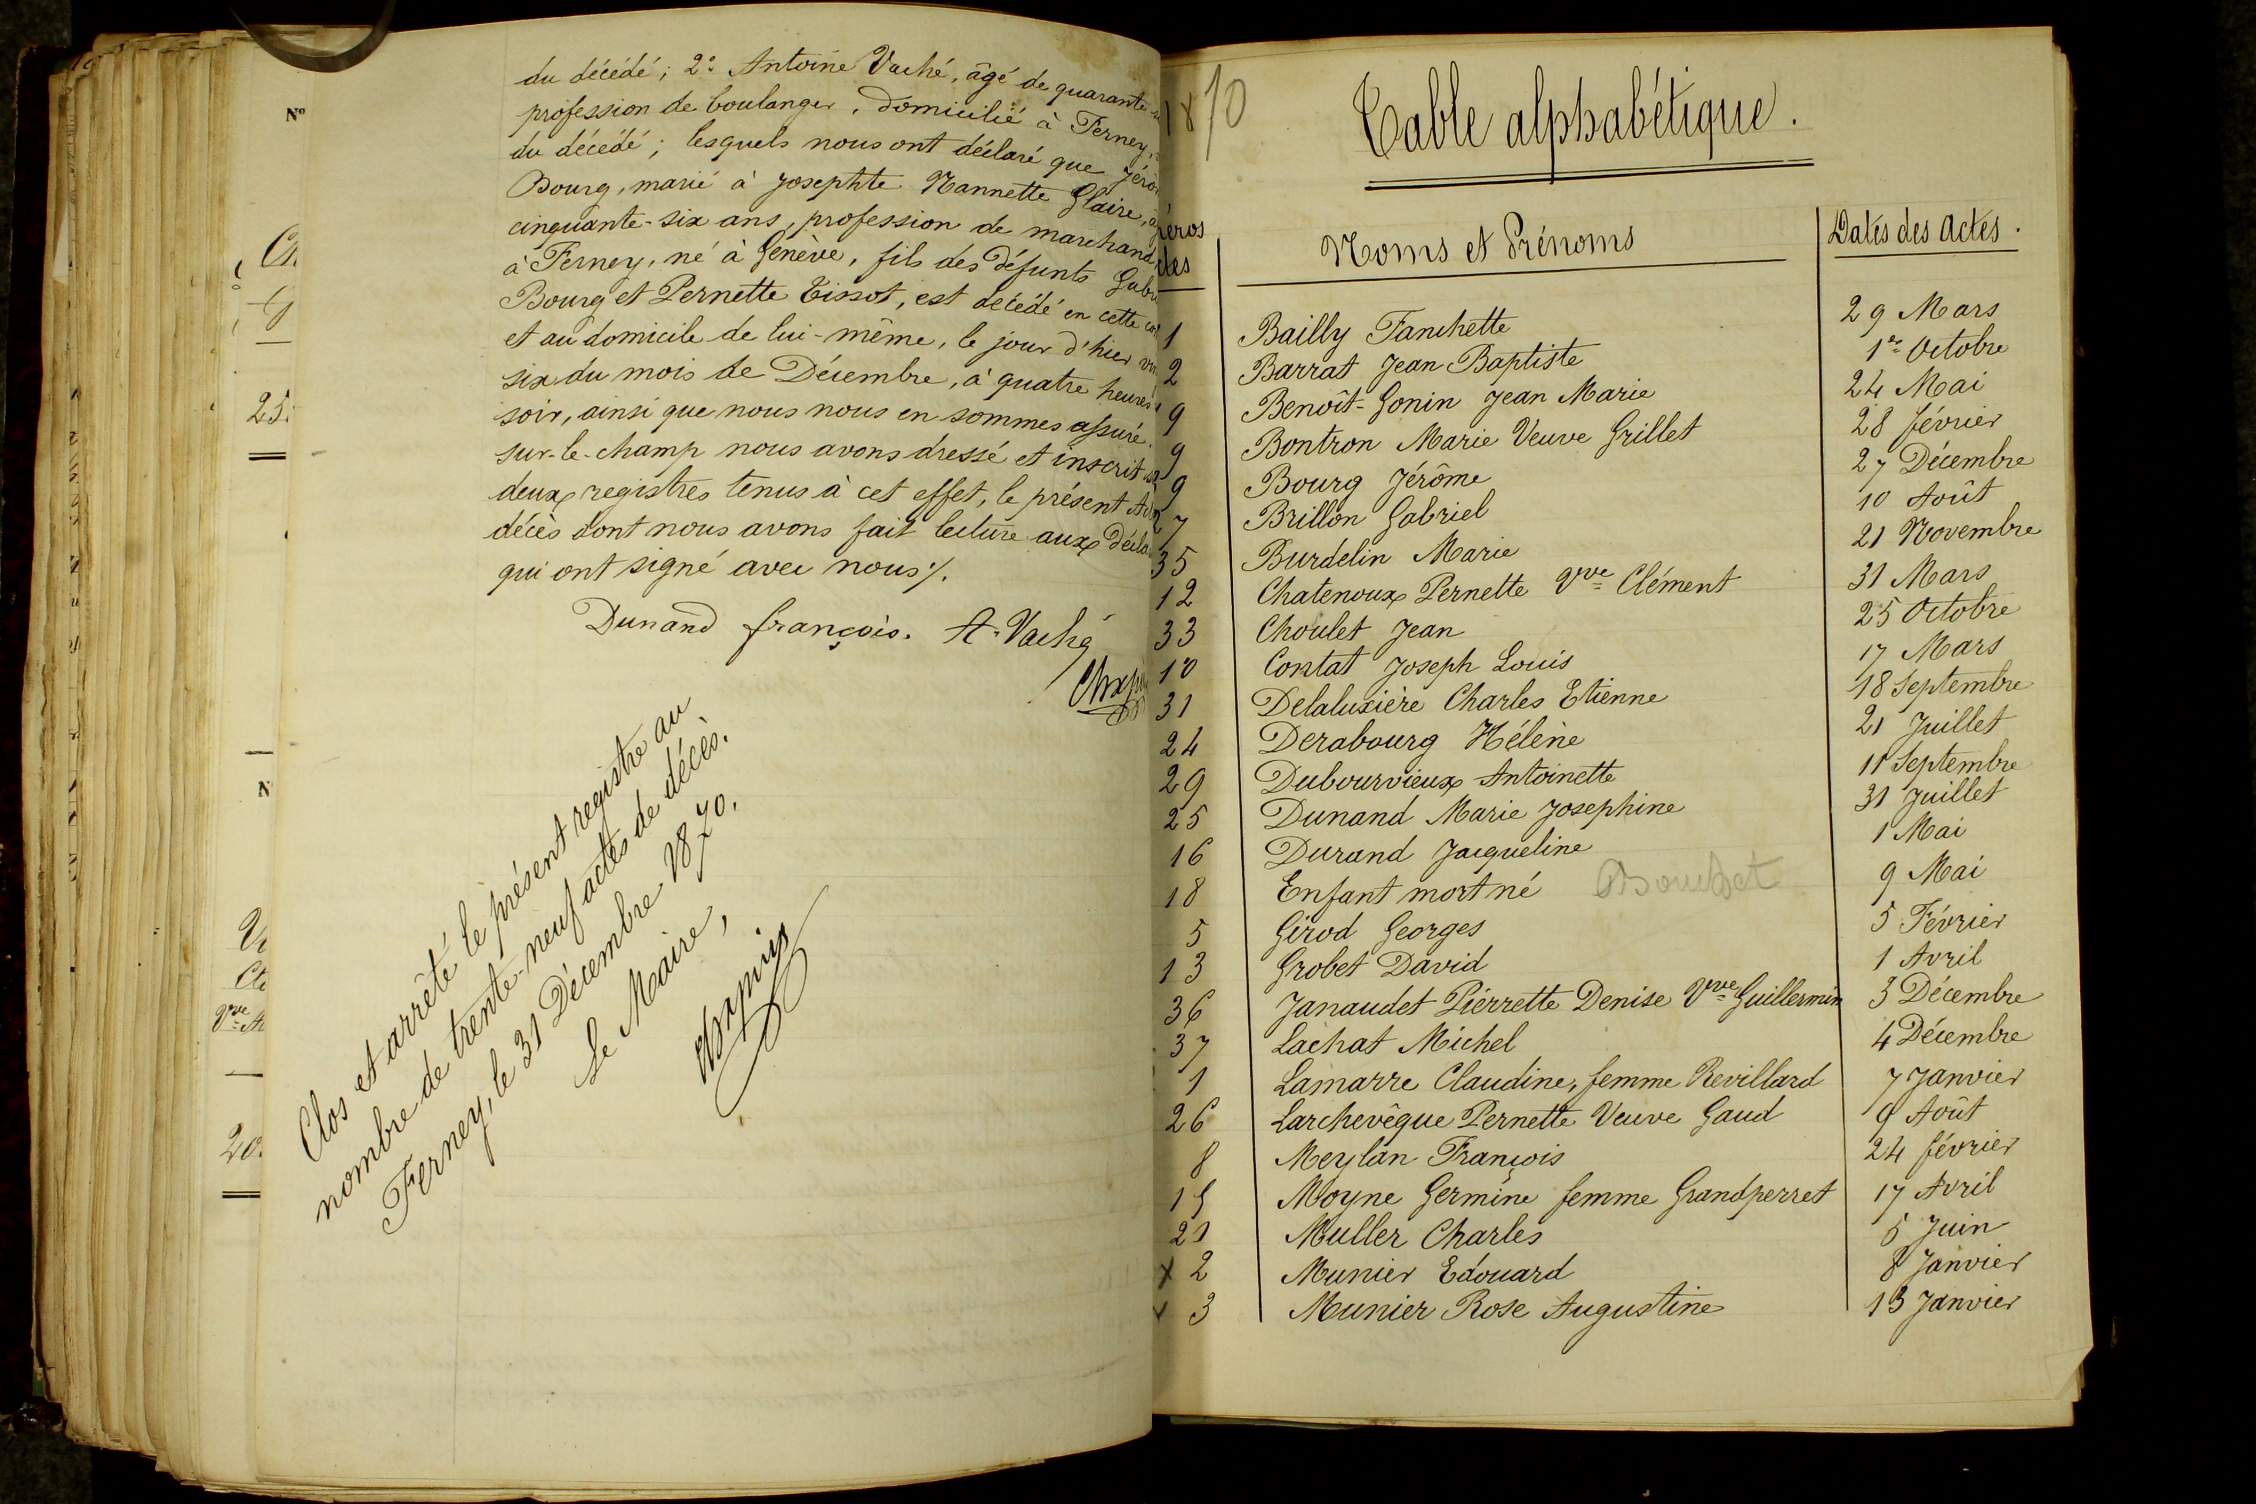 N°
du décédé; 2° Antoine Vaché, âgé de quarante
profession de boulanger, domicilié à Ferney,
du décédé; lesquels nous ont déclaré que Jérô
Bourg, marié à Josephte Nannette Glaire,
cinquante-six ans, profession de marchand
à Ferney, né à Genève, fils des défunts Gabr
Bourg et Pernette Tissot, est décédé en cette
et au domicile de lui-même, le jour d'hier
six du mois de Décembre, à quatre heures
soir, ainsi que nous nous en sommes assuré.
sur-le-champ nous avons dressé et inscrit
deux registres tenus à cet effet, le présent
décès dont nous avons fait lecture aux
qui ont signé avec nous %.
Dunand françois. A. Vaché
Clos et arrêté le présent registre au
nombre de trente-neuf actes de décès.
Ferney, le 31 Décembre 1870.
Le Maire,
25
20
1870
Table alphabétique.
éros
tes
Noms et Prénoms
Dates des Actes.
1 Bailly Fanchette 29 Mars
2 Barrat Jean Baptiste 1er Octobre
9 Benoît-Gonin Jean Marie 24 Mai
9 Bontron Marie Veuve Grillet 28 février
9 Bourg Jérôme 27 Décembre
7 Brillon Gabriel 10 Août
35 Burdelin Marie 21 Novembre
12 Chatenoux Pernette Vve Clément 31 Mars
33 Choulet Jean 25 Octobre
10 Contat Joseph Louis 17 Mars
31 Delaluxière Charles Etienne 18 Septembre
24 Derabourg Hélène 21 Juillet
29 Dubourvieux Antoinette 11 Septembre
25 Dunand Marie Josephine 31 Juillet
16 Durand Jacqueline 1 Mai
18 Enfant mort né 9 Mai
5 Girod Georges 5 Février
13 Grobet David 1 Avril
36 Janaudet Pierrette Denise Vve Guillermin 3 Décembre
37 Lachat Michel 4 Décembre
1 Lamarre Claudine, femme Revillard 7 Janvier
26 Larchevêque Pernette Veuve Gaud 9 Août
8 Meylan François 24 février
15 Moyne Germine femme Grandperret 17 Avril
21 Muller Charles 5 Juin
x 2 Munier Edouard 8 Janvier
x 3 Munier Rose Augustine 13 Janvier